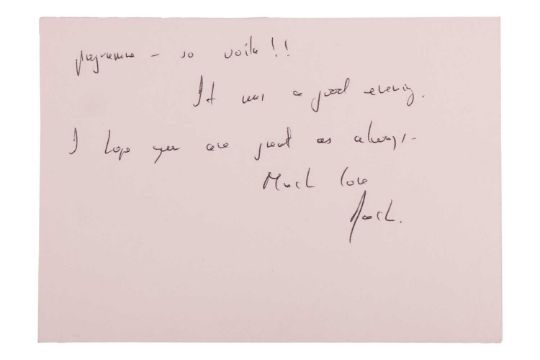 programme - so voila!!
It was a good evening.
I hope you are great as always -
Much love